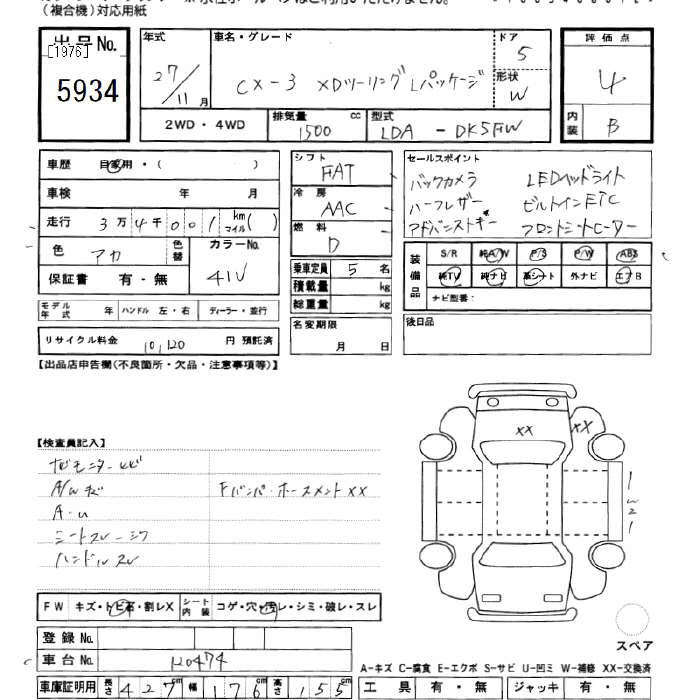 (複合機)対応用紙
出品No.
[1976]
5934
年式
27/11月
車名・グレード
CX-3 XDツーリング Lパッケージ
ドア
5
形状
W
評価点
4
内装
B
2WD・4WD
排気量
1500
cc
型式
LDA - DK5FW
車歴 自家用・( )
車検 年 月
走行 3万4千001 km マイル( )
色 アカ
色替
カラーNo.
41V
保証書 有・無
モデル年式 年 ハンドル 左・右 ディーラー・並行
リサイクル料金 10,120 円 預託済
シフト
FAT
冷房
AAC
燃料
D
乗車定員 5 名
積載量 kg
総重量 kg
名変期限
月 日
セールスポイント
バックカメラ LEDヘッドライト
ハーフレザー ビルトインETC
アドバンストキー フロントシートヒーター
装備品
S/R 純A/W P/S P/W ABS
純TV 純ナビ 革シート 外ナビ エアB
ナビ型番:
後日品
【出品店申告欄(不良箇所・欠品・注意事項等)】
【検査員記入】
ナビモニターヒビ
A/Wキズ
Fバンパ・ホースメントXX
A・U
シートスレーシワ
ハンドルスレ
XX
XX
FW キズ・トビ石・割レX
シート内装 コゲ・穴・汚レ・シミ・破レ・スレ
登録No.
車台No. 120474
車庫証明用 長さ 427cm 幅 176cm 高さ 155cm
スペア
A-キズ C-腐食 E-エクボ S-サビ U-凹ミ W-補修 XX-交換済
工具 有・無 ジャッキ 有・無